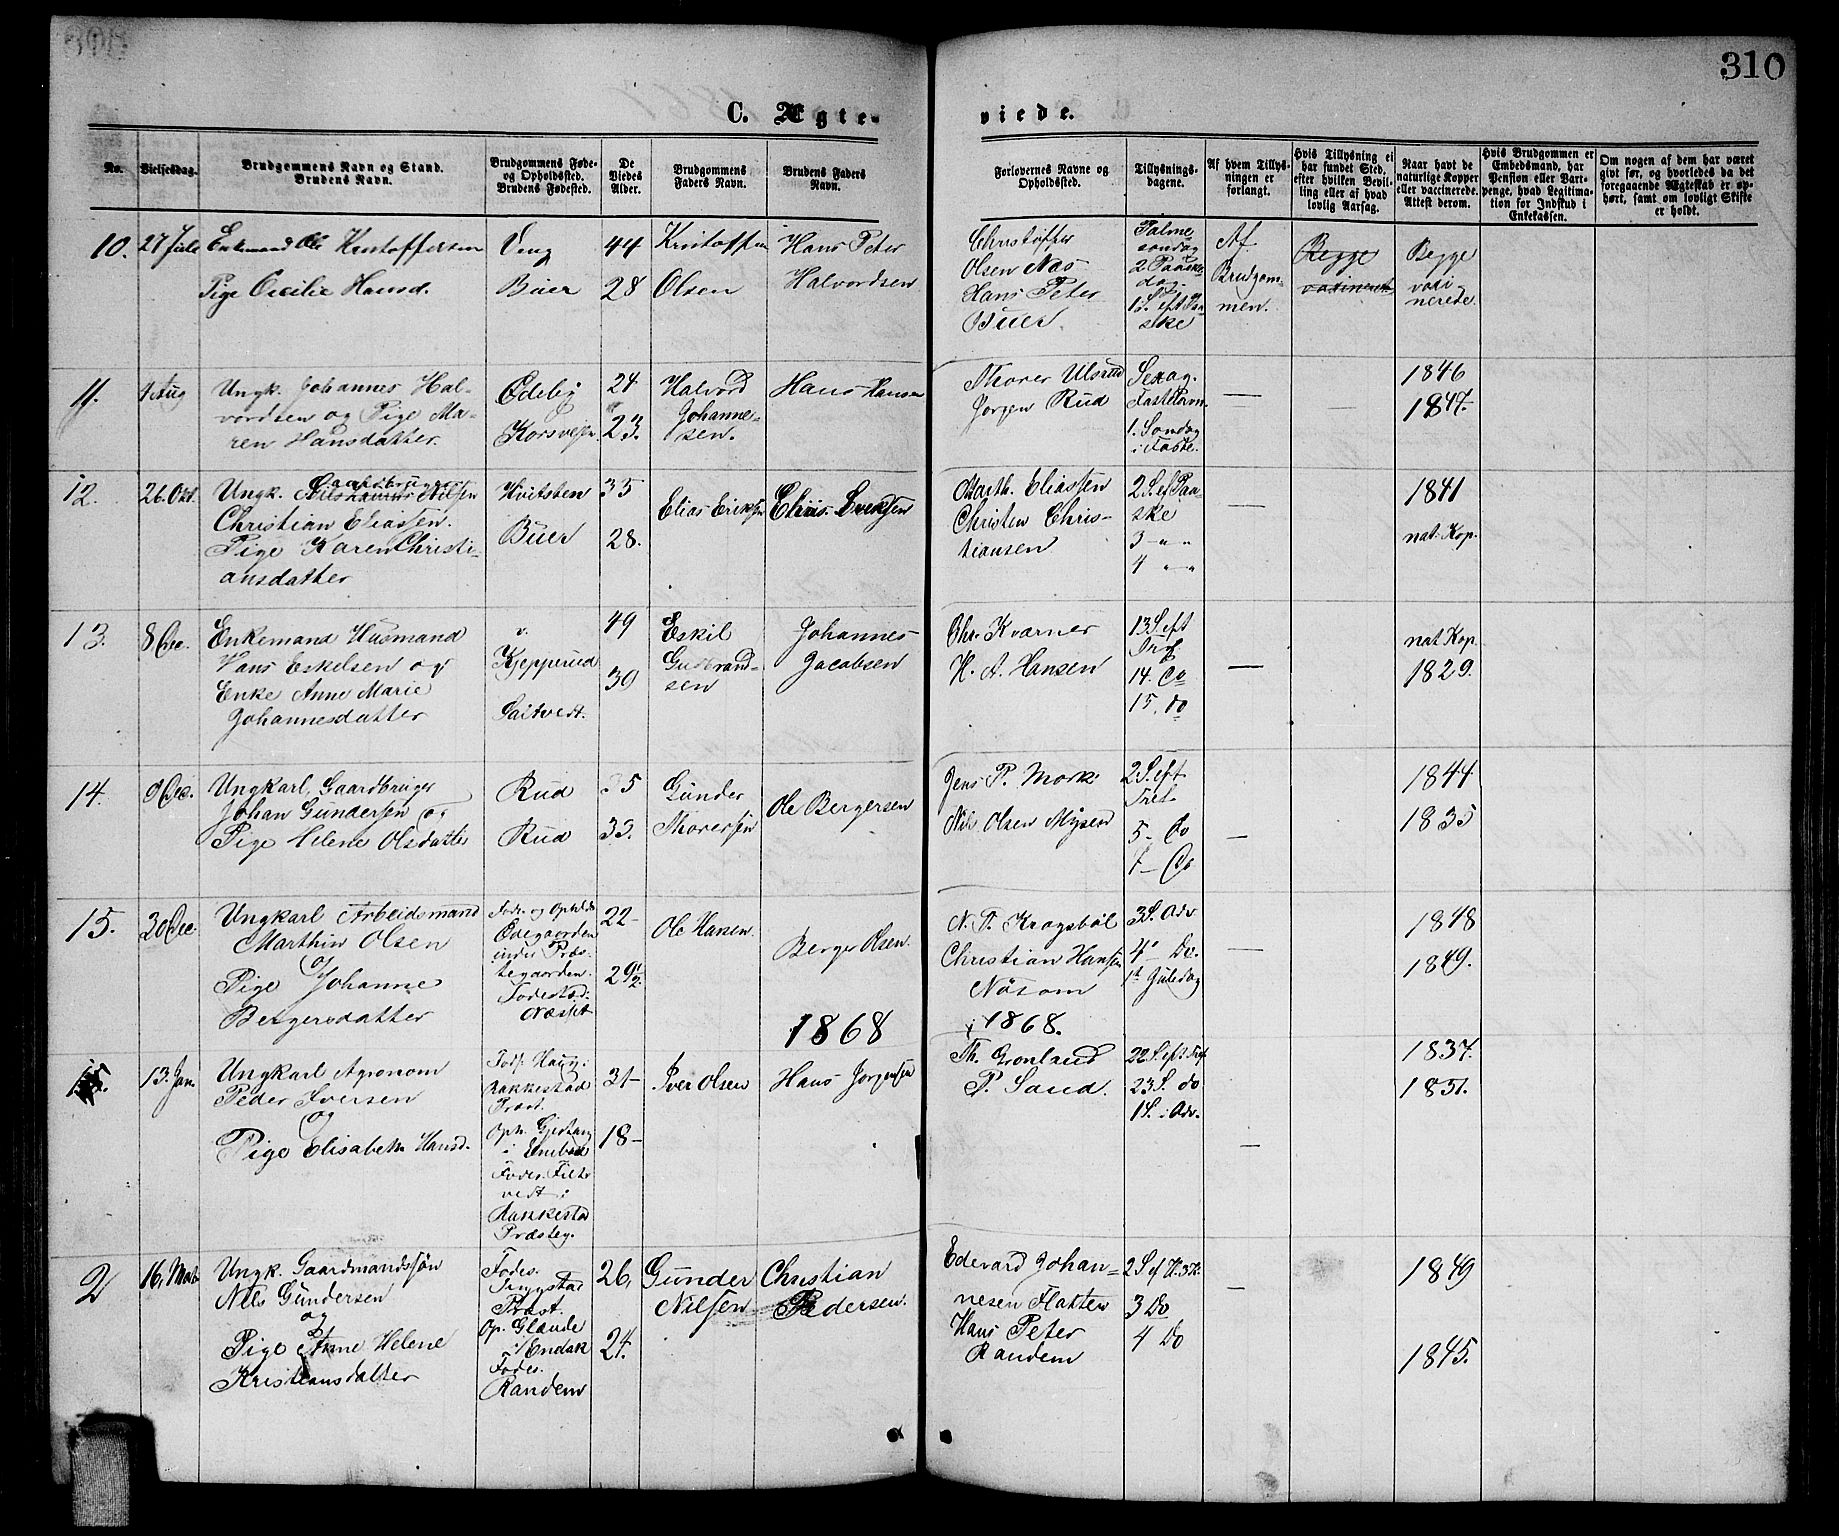 310
C. Ægte-
viede.
No.
Vielsesdag.
Brudgommens Navn og Stand.
Brudens Navn.
Brudgommens Føde-
og Opholdssted.
Brudens Fødested.
De
Viedes
Alder.
Brudgommens
Faders Navn.
Brudens Faders
Navn.
Forlovernes Navne og
Opholdssted.
Tillysnings-
dagene.
Af hvem Tillys-
ningen er
forlangt.
Hvis Tillysning ei
har fundet Sted,
efter hvilken Bevil-
ling eller af hvad
lovlig Aarsag.
Naar havt de
naturlige Kopper
eller vaccinerede.
Attest derom.
Hvis Brudgommen er
Embedsmand, har
Pension eller Vart-
penge, hvad Legitima-
tion for Indskud i
Enkekassen.
Om nogen af dem har været
givt før, og hvorledes da det
foregaaende Ægteskab er op-
hørt, samt om lovligt Skifte
er holdt.
10.
27 Jule
Enkemand Ole Kristoffersen
Pige Cecilie Hansd.
Veng
Buer
44
28
Kristoffer
Olsen
Hans Peter
Halvordsen
Christoffer
Olsen Næs
Hans Peter
Buer.
Palme
sondag
2 Paaske
dag.
1 S. eft Paa
ske
Af
Brudgom-
men.
Begge
vaxinerede
Begge
vaxi-
nerede.
11.
4 Aug
Ungk. Johannes Hal-
vordsen og Pige Ma-
ren Hansdatter.
Ødeby
Korsvegen
24
23.
Halvord
Johanne-
sen.
Hans Hansen
Thorer Ulsrud
Jorgen Rud
Sexag.
Fastelavn.
1. Sondag
i Faste.
—
—
1846
1847.
12.
26. Okt.
Ungk. Gaardbruger
Christian Eliassen.
Pige Karen Christi-
ansdatter
Hvitsten
Buer
35
28.
Elias Eriksen
Chris. Eriksen
Marth. Eliassen
Christen Chris-
tiansen
2 S. ef Paa-
ske
3 — " "
4 " "
—
1841
nat. Kop.
13.
8 Dec.
Enkemand Husmand
Hans Eskelsen og
Enke Anne Marie
Johannesdatter
v.
Kjepperud
Saltvedt.
49
39
Eskil
Gudbrand-
sen
Johannes
Jacobsen
Chr. Kværner
H. A. Hansen
13 S eft
Tref
14. Do
15. do
—
nat Kop.
1829.
14.
9 Dec.
Ungkarl, Gaardbruger
Johan Gundersen og
Pige Helene Olsdatter
Rud
Rud
35
33.
Gunder
Thoresen
Ole Bergersen
Jens P. Mork
Nils Olsen Mysen
2 S. eft
Tref.
5— Do
7— Do
—
1844
1835
15.
30 Dec.
Ungkarl Arbeidsmand
Marthin Olsen
og
Pige Johanne
Bergersdatter
Fode- og Opholds
Ødegaarden
under Præs-
tegaarden.
Fodested:
Næsset
22—
29½
Ole Hansen.
Berger Olsen.
N. P. Kragsbøl
Christian Hansen
Nøsom
3 S. Adv.
4' Do.
1ste Juledag
—
1848
1849.
1868
i 1868.
13. Jan.
Ungkarl Agronom
Peder Iversen
og
Pige Elisabeth Hansd.
Fodf. Haug i
Rakkestad
Præst.
Oph. Gjeltang
i Enebak
Fodes. Filt-
vedt i
Rakkestad
Præsteg.
31—
18—
Iver Olsen
Hans Jorgensen
Th. Gronlund
P. Sand.
22 S. eft Tref
23 S. do
1 S. i Adv.
—
1837.
1851.
2
16. Mart
Ungk. Gaardmandssøn
Nils Gundersen
og
Pige Anne Helene
Kristiansdatter
Fodes.
Tryggstad
Præst.
Op. Glende
i Endak
Fodes.
Randem
26,
24.
Gunder
Nilsen
Christian
Pedersen.
Edevard Johan-
nesen Flatten
Hans Peter
Randem
2 S ef H. 3 K.
3 Do
4 Do
—
1849
1845.